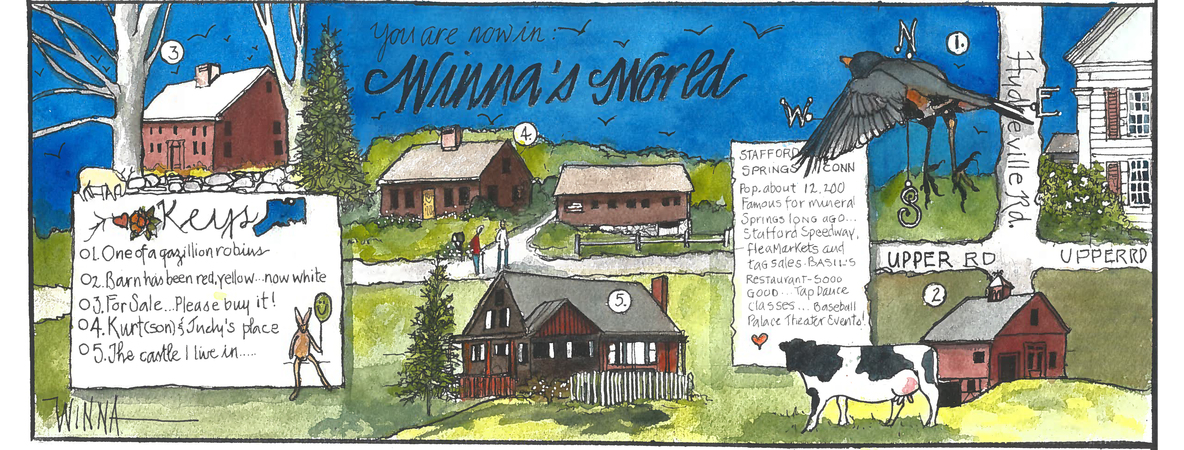 You are now in:
Winna's World
3
4.
1.
N
W
E
S
Hydeville Rd.
UPPER RD
UPPER RD
2
5.
Keys
01. One of a gazillion robins
02. Barn has been red, yellow...now white
03. For Sale...Please buy it!
04. Kurt(son) & Judy's place
05. The castle I live in.....
STAFFORD
SPRINGS, CONN
Pop. about 12,200
Famous for muneral
Springs long ago...
Stafford Speedway,
fleaMarkets and
tag sales-BASIL'S
Restaurant-Sooo
GOOD... Tap Dance
Classes... Baseball
Palace Theater Events!
WINNA